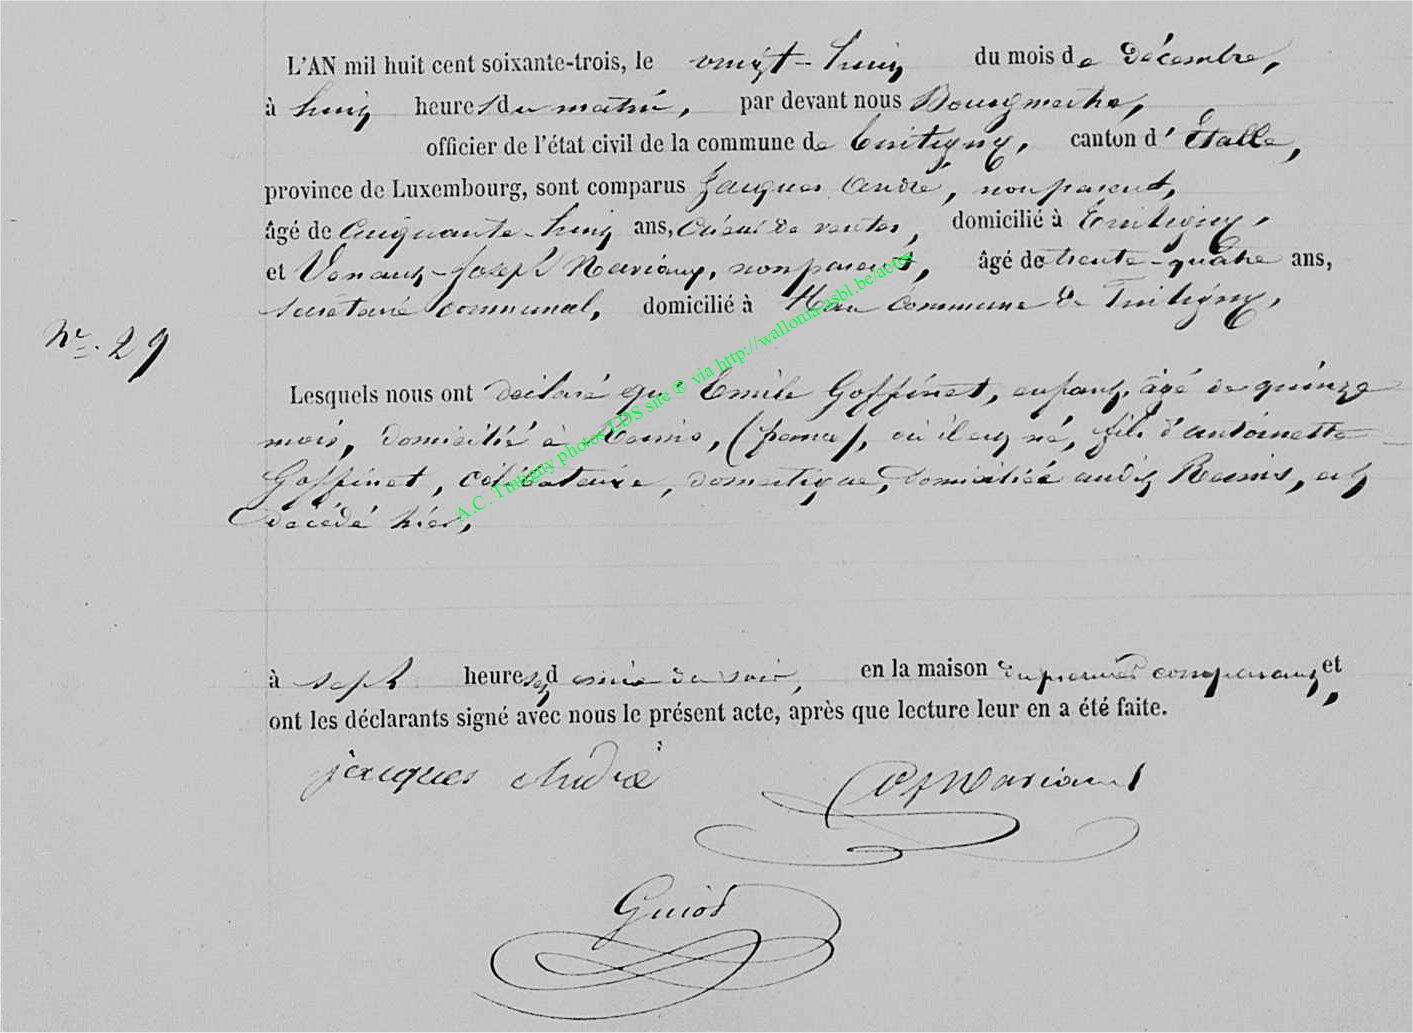 L'AN mil huit cent soixante-trois, le vingt-huit du mois de Décembre,
à huit heures du matin, par devant nous Bourgmestre,
officier de l'état civil de la commune de Tintigny, canton d'Étalle,
province de Luxembourg, sont comparus Jacques André, non parent,
âgé de cinquante-huit ans, crieur de ventes, domicilié à Tintigny,
et Venant-Joseph Mariaux, non parent, âgé de trente-quatre ans,
secrétaire communal, domicilié à commune de Tintigny,
N°. 29
Lesquels nous ont déclaré que Emile Goffinet, enfant, âgé de quinze
mois, domicilié à Reims, où il est né, fils d'antoinette
Goffinet, célibataire, domestique, domiciliée audit Reims, est
décédé hier,
à sept heures et demie du soir, en la maison du premier comparant, et
ont les déclarants signé avec nous le présent acte, après que lecture leur en a été faite.
jacques André
Mariaux
Guiot
A.C. Tintigny photos LDS site © via http://wallonia-asbl.be/actes